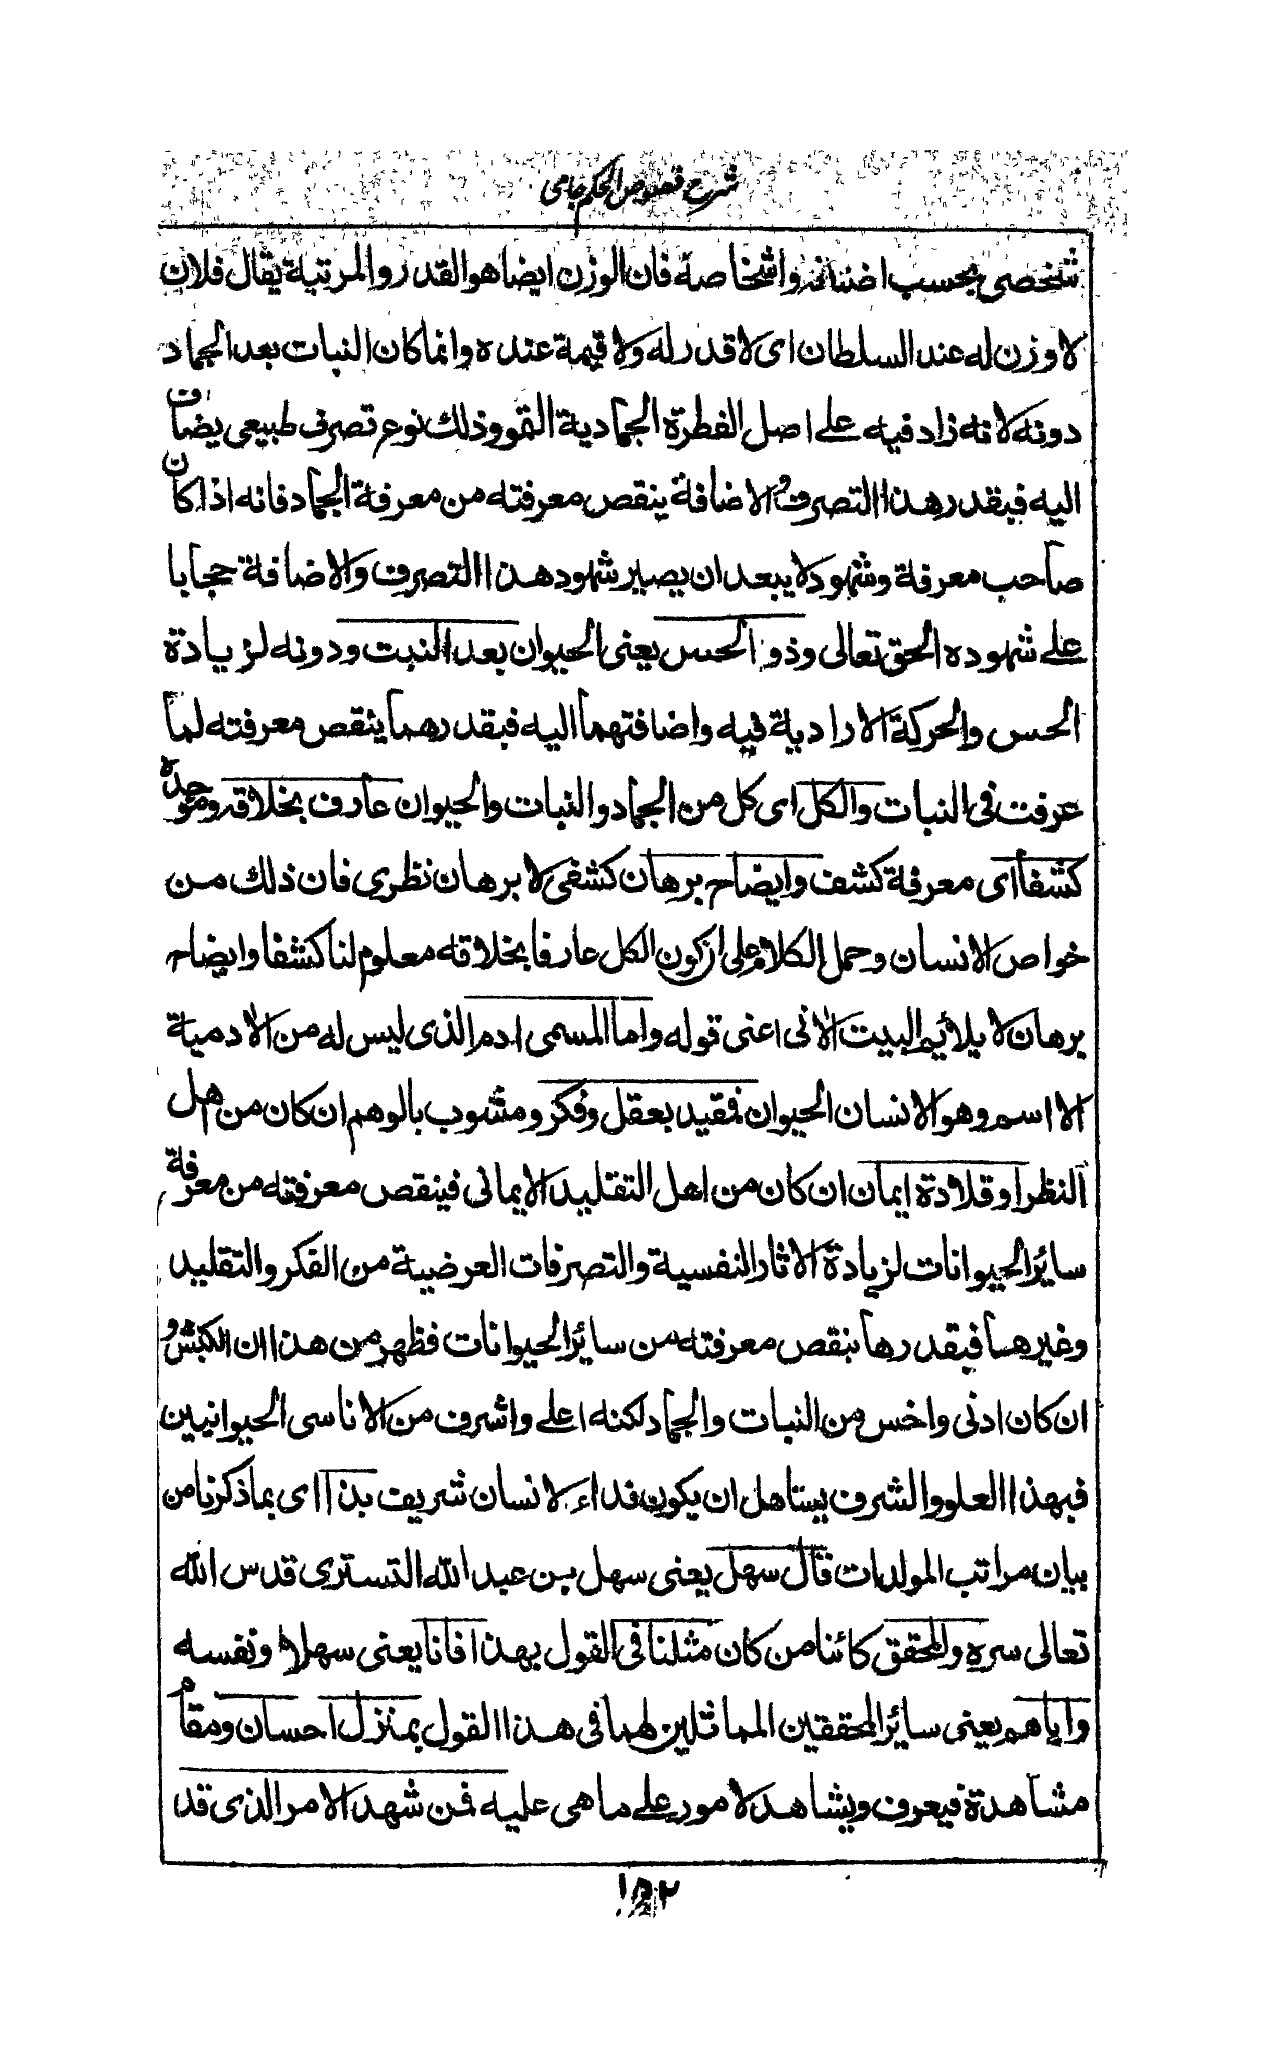 شرح فصوص الحكم جامى
شخصى بحسب اصنافه واشخاصه فان الوزن ايضا هو القدر والمرتبة يقال فلان
لا وزن له عند السلطان اى لا قدر له ولا قيمة عنده وانما كان النبات بعد الجماد
دونه لانه زاد فيه على اصل الفطرة الجمادية النمو وذلك نوع تصرف طبيعى يضاف
اليه فبقدر هذا التصرف والاضافة ينقص معرفته من معرفة الجماد فانه اذا كان
صاحب معرفة وشهود لا يبعد ان يصير شهود هذا التصرف والاضافة حجابا
على شهوده الحق تعالى وذو الحس يعنى الحيوان بعد النبت ودونه لزيادة
الحس والحركة الارادية فيه واضافتهما اليه فبقدرهما ينقص معرفته لما
عرفت فى النبات والكل اى كل من الجماد والنبات والحيوان عارف بخلاقه وموجده
كشفا اى معرفة كشف وايضاح برهان كشفى لا برهان نظرى فان ذلك من
خواص الانسان وحمل الكلام على ان كون الكل عارفا بخلاقه معلوم لنا كشفا وايضاح
برهان لا يلائم البيت الاتى اعنى قوله واما المسمى ادم الذى ليس له من الادمية
الا اسم وهو الانسان الحيوان فمقيد بعقل وفكر ومشوب بالوهم ان كان من اهل
النظر او قلادة ايمان ان كان من اهل التقليد الايمانى فينقص معرفته من معرفة
سائر الحيوانات لزيادة الاثار النفسية والتصرفات العرضية من الفكر والتقليد
وغيرهما فبقدرها ينقص معرفته من سائر الحيوانات فظهر من هذا ان الكبش و
ان كان ادنى واخس من النبات والجماد لكنه اعلى واشرف من الاناسى الحيوانيين
فبهذا العلو والشرف يستاهل ان يكون فداء لانسان شريف بذا اى بما ذكرنا من
بيان مراتب المولدات قال سهل يعنى سهل بن عبد الله التسترى قدس الله
تعالى سره والمحقق كائنا من كان مثلنا فى القول بهذا فانا يعنى سهلا ونفسه
واياهم يعنى سائر المحققين المماثلين لهما فى هذا القول بمنزل احسان ومقام
مشاهدة فيعرف ويشاهد لامور على ما هى عليه فمن شهد الامر الذى قد
١٥٢